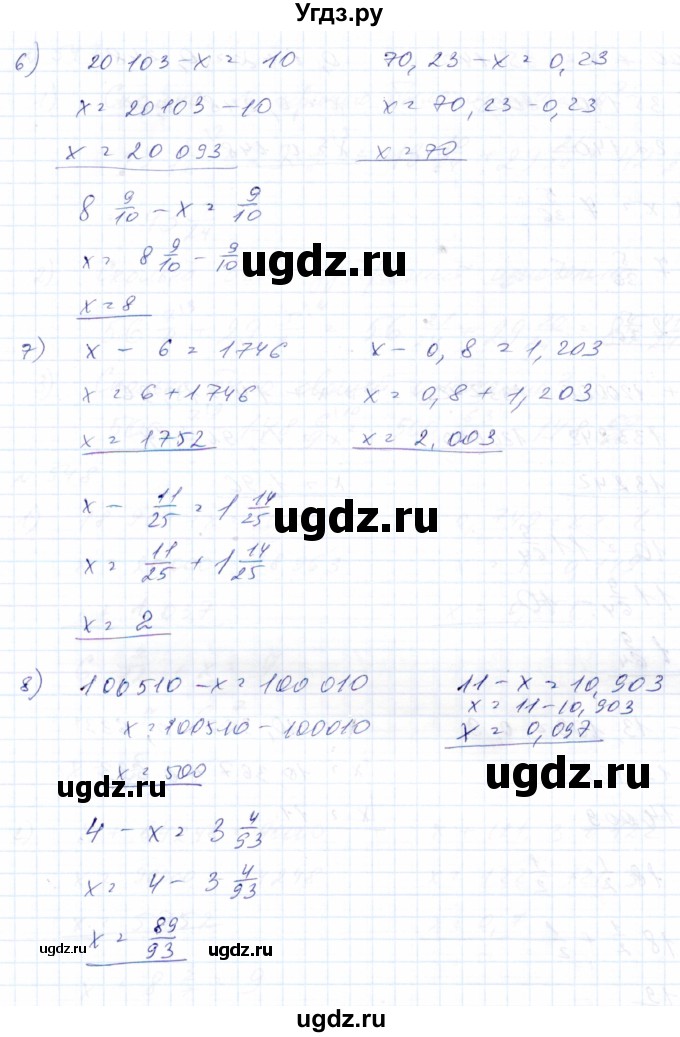 Угдз.ру
6) 20103 – x = 10
x = 20103 – 10
x = 20 093
70,23 – x = 0,23
x = 70,23 – 0,23
x = 70
8 9/10 – x = 9/10
x = 8 9/10 – 9/10
x = 8
ugdz.ru
7) x – 6 = 1746
x = 6 + 1746
x = 1752
x – 0,8 = 1,203
x = 0,8 + 1,203
x = 2,003
x – 11/25 = 1 14/25
x = 11/25 + 1 14/25
x = 2
ugdz.ru
8) 100510 – x = 100 010
x = 100510 – 100010
x = 500
11 – x = 10,903
x = 11 – 10,903
x = 0,097
ugdz.ru
ugdz.ru
4 – x = 3 4/93
x = 4 – 3 4/93
x = 89/93
ugdz.ru
ugdz.ru
ugdz.ru